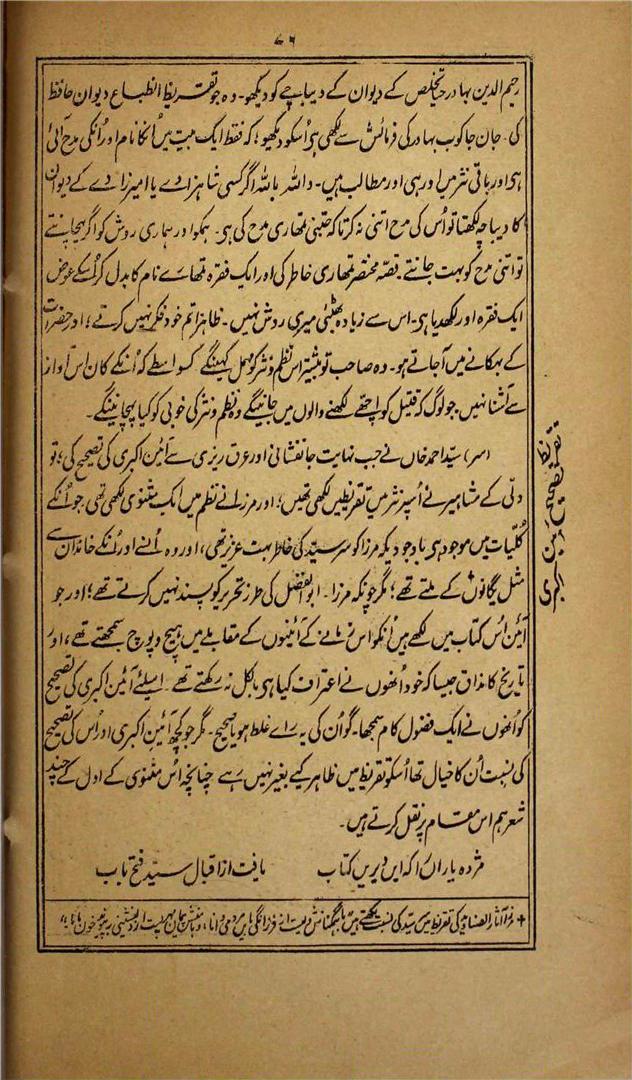 ۷۶
رحیم الدین بہادر حیا تخلص کے دیوان کے دیباچے کو دیکھو۔ وہ جو تقریظ انطباع دیوان حافظ
کی۔ جان جاکوب بہادر کی فرمائش سے لکھی ہی اُسکو دیکھو؛ کہ فقط ایک بیت میں اُنکا نام اور اُنکی مدح آئی
ہی اور باقی نثر میں اور ہی اور مطالب ہیں۔ واللہ باللہ اگر کسی شاہزادے یا امیرزادے کے دیوان
کا دیباچہ لکھتا تو اُس کی مدح اتنی نہ کرتا کہ جتنی تمھاری مدح کی ہی۔ ہمکو اور ہماری روش کو اگر پہچانتے
تو اتنی مدح کو بہت جانتے۔ قصہ مختصر تمھاری خاطر کی اور ایک فقرہ تمھارے نام کا بدل کر اُسکے عوض
ایک فقرہ اور لکھدیا ہی۔ اس سے زیادہ بھٹئی میری روش نہیں۔ ظاہرا تم خود فکر نہیں کرتے؛ اور حضرات
کے بہکانے میں آجاتے ہو۔ وہ صاحب تو بیشتر اس نظم و نثر کو مہمل کہینگے کسواسطے کہ اُنکے کان اس آواز
سے آشنا نہیں۔ جو لوگ کہ قتیل کو اچھے لکھنے والوں میں جانینگے وہ نظم و نثر کی خوبی کو کیا پہچانینگے۔
(سر) سیّد احمد خاں نے جب نہایت جانفشانی اور عرق ریزی سے آئین اکبری کی تصحیح کی؛ تو
دلّی کے مشاہیر نے اُسپر نثر میں تقریظیں لکھی تھیں؛ اور مرزا نے نظم میں ایک مثنوی لکھی تھی جو اُنکے
کلیات میں موجود ہی باوجودیکہ مرزا کو سر سیّد کی خاطر بہت عزیز تھی، اور وہ اُنسے اور اُنکے خاندان سے
مثل یگانوں+ کے ملتے تھے؛ مگر چونکہ مرزا۔ ابوالفضل کی طرز تحریر کو پسند نہیں کرتے تھے؛ اور جو
آئین اُس کتاب میں لکھے ہیں اُنکو اس زمانے کے آئینوں کے مقابلے میں ہیچ و پوچ سمجھتے تھے، اور
تاریخ کا مذاق جیسا کہ خود اُنھوں نے اعتراف کیا ہی بالکل نہ رکھتے تھے۔ اسلیئے آئین اکبری کی تصحیح
کو اُنھوں نے ایک فضول کام سمجھا۔ گو اُن کی یہ راے غلط ہو یا صحیح۔ مگر جو کچھ آئین اکبری اور اُس کی تصحیح
کی نسبت اُن کا خیال تھا اُسکو تقریظ میں ظاہر کیے بغیر نہیں رہے چنانچہ اُس مثنوی کے اول کے چند
شعر ہم اس مقام پر نقل کرتے ہیں۔
مژدہ یاراں را کہ ایں دیریں کتاب یافت از اقبال سیّد فتح باب
+ مرزا آثار الصنادید کی تقریظ میں سر سیّد کی نسبت لکھتے ہیں
تقریظ تصحیح آئین اکبری